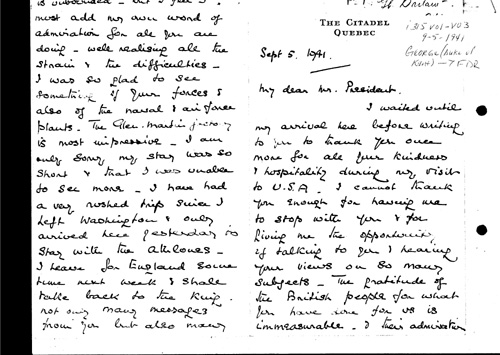 THE CITADEL
QUEBEC
Sept 5. 1941.
My dear Mr. President.
I waited until
my arrival here before writing
to you to thank you once
more for all your kindness
& hospitality during my visit
to U.S.A. I cannot thank
you enough for having me
to stop with you & for
giving me the opportunity
of talking to you & hearing
your views on so many
subjects - The gratitude of
the British people for what
you have done for us is
immeasurable. & their admiration
is unbounded - but I feel I
must add my own word of
admiration for all you are
doing - well realising all the
strain & the difficulties -
I was so glad to see
something of your forces &
also of the naval & air force
plants. The Glen. Martin factory
is most impressive - I am
only sorry my stay was so
short & that I was unable
to see more - I have had
a very rushed trip since I
left Washington & only
arrived here yesterday to
stay with the Athlones -
I leave for England some
time next week & shall
take back to the King.
not only many messages
from you but also many
9-5-1941
GEORGE (Duke of
Kent) - 7 FDR